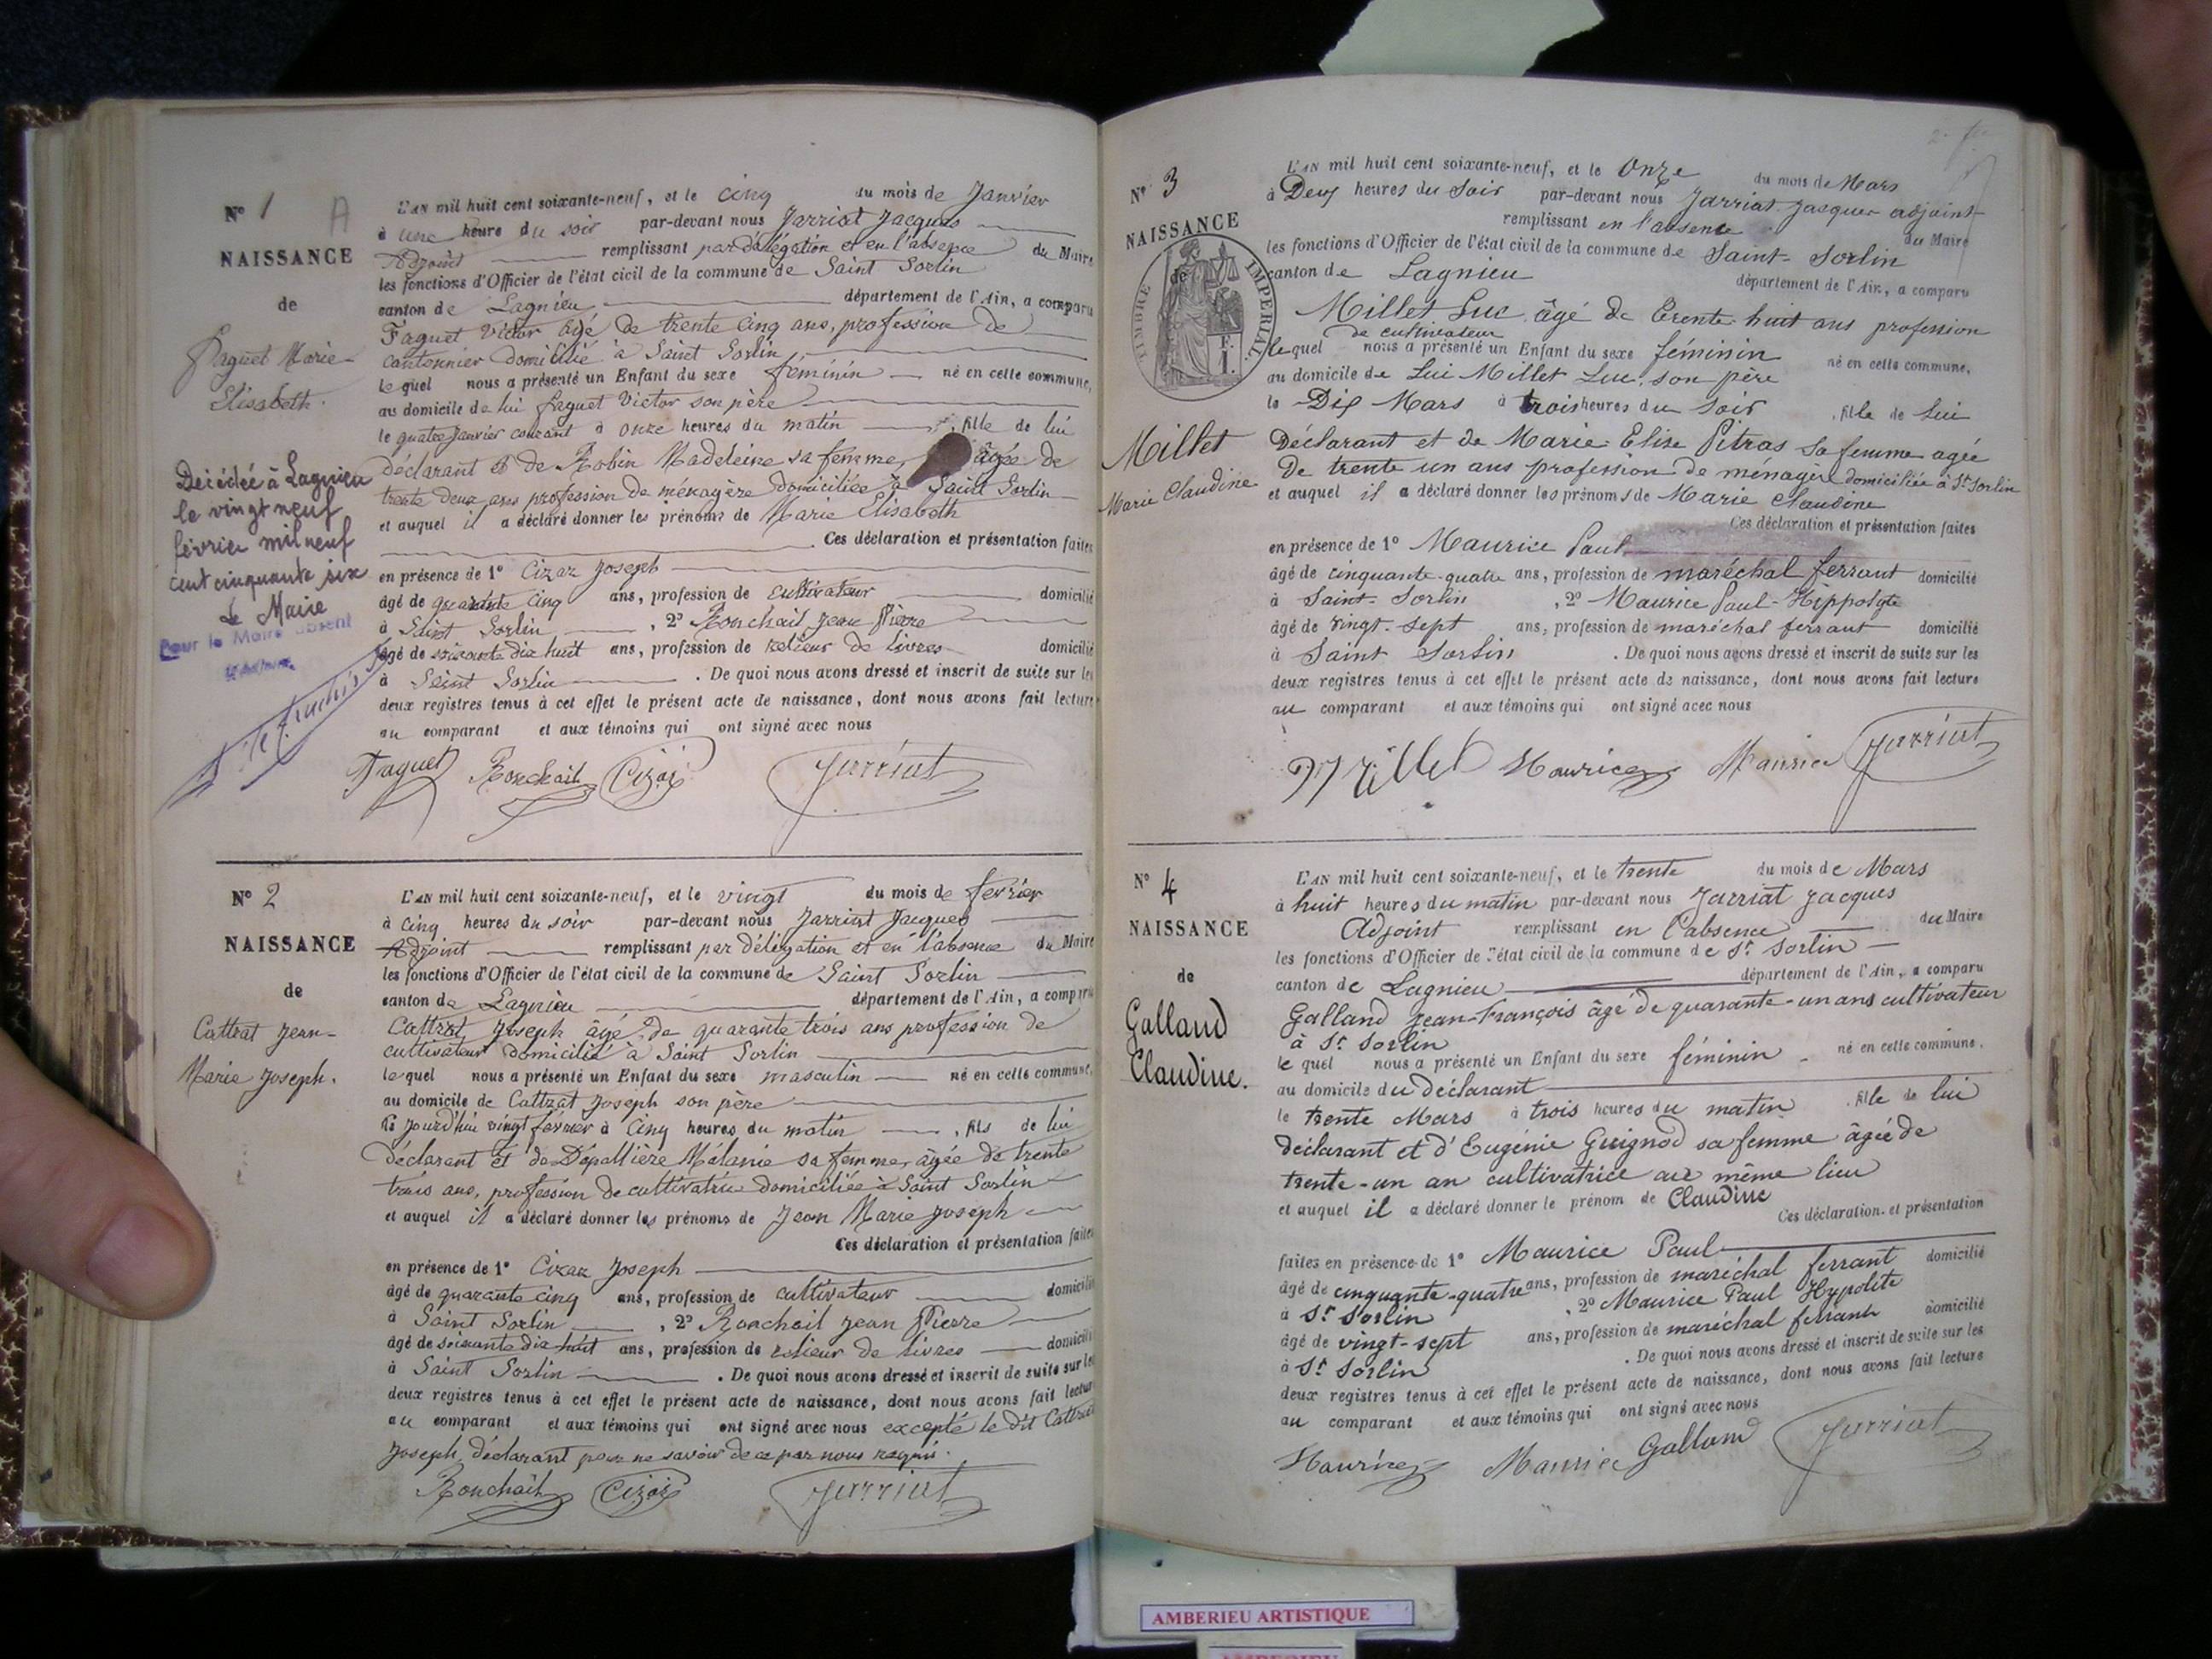 N° 1 A
NAISSANCE
de
Faguet Marie
Elisabeth.
Décédée à Lagnieu
le vingt neuf
février mil neuf
cent cinquante six
Le Maire
Pour le Maire absent
L'AN mil huit cent soixante-neuf, et le cinq du mois de Janvier
à une heure du soir par-devant nous Jarriat Jacques
Adjoint remplissant par délégation et en l'absence du Maire
les fonctions d'Officier de l'état civil de la commune de Saint Sorlin
canton de Lagnieu département de l'Ain, a comparu
Faguet Victor âgé de trente cinq ans, profession de
cantonnier domicilié à Saint Sorlin
lequel nous a présenté un Enfant du sexe féminin né en cette commune,
au domicile de lui Faguet Victor son père
le quatre Janvier courant à onze heures du matin, fille de lui
déclarant et de Robin Madeleine sa femme, âgée de
trente deux ans profession de ménagère domiciliée à Saint Sorlin
et auquel il a déclaré donner les prénoms de Marie Elisabeth
Ces déclaration et présentation faites
en présence de 1° Cizar Joseph
âgé de quarante cinq ans, profession de cultivateur domicilié
à Saint Sorlin, 2° Ronchail Jean Pierre
âgé de soixante dix huit ans, profession de relieur de livres domicilié
à Saint Sorlin. De quoi nous avons dressé et inscrit de suite sur les
deux registres tenus à cet effet le présent acte de naissance, dont nous avons fait lecture
au comparant et aux témoins qui ont signé avec nous
Faguet Ronchail Cizar Jarriat
N° 2
NAISSANCE
de
Cattrat Jean-
Marie Joseph.
L'AN mil huit cent soixante-neuf, et le vingt du mois de février
à cinq heures du soir par-devant nous Jarriat Jacques
Adjoint remplissant par délégation et en l'absence du Maire
les fonctions d'Officier de l'état civil de la commune de Saint Sorlin
canton de Lagnieu département de l'Ain, a comparu
Cattrat Joseph âgé de quarante trois ans profession de
cultivateur domicilié à Saint Sorlin
lequel nous a présenté un Enfant du sexe masculin né en cette commune,
au domicile de Cattrat Joseph son père
le jourd'hui vingt février à cinq heures du matin, fils de lui
déclarant et de Dépallière Mélanie sa femme, âgée de trente
trois ans, profession de cultivatrice domiciliée à Saint Sorlin
et auquel il a déclaré donner les prénoms de Jean Marie Joseph
Ces déclaration et présentation faites
en présence de 1° Cizar Joseph
âgé de quarante cinq ans, profession de cultivateur domicilié
à Saint Sorlin, 2° Ronchail Jean Pierre
âgé de soixante dix huit ans, profession de relieur de livres domicilié
à Saint Sorlin. De quoi nous avons dressé et inscrit de suite sur les
deux registres tenus à cet effet le présent acte de naissance, dont nous avons fait lecture
au comparant et aux témoins qui ont signé avec nous excepté le dit Cattrat
Joseph, déclarant pour ne savoir de ce par nous requis.
Ronchail Cizar Jarriat
N° 3
NAISSANCE
de
TIMBRE IMPERIAL.
F.
1.
Millet
Marie Claudine
L'AN mil huit cent soixante-neuf, et le Onze du mois de Mars
à Deux heures du Soir par-devant nous Jarriat Jacques adjoint
remplissant en l'absence du Maire
les fonctions d'Officier de l'état civil de la commune de Saint-Sorlin
canton de Lagnieu département de l'Ain, a comparu
Millet Luc âgé de trente huit ans profession
de cultivateur
lequel nous a présenté un Enfant du sexe féminin né en cette commune,
au domicile de Lui Millet Luc, son père
le Dix Mars à trois heures du Soir, fille de Lui
Déclarant et de Marie Elise Pitras sa femme agée
De trente un ans profession de ménagère domiciliée à St Sorlin
et auquel il a déclaré donner les prénoms de Marie Claudine
Ces déclaration et présentation faites
en présence de 1° Maurice Paul
âgé de cinquante-quatre ans, profession de maréchal ferrant domicilié
à Saint-Sorlin, 2° Maurice Paul-Hippolyte
âgé de vingt-sept ans, profession de maréchal ferrant domicilié
à Saint Sorlin. De quoi nous avons dressé et inscrit de suite sur les
deux registres tenus à cet effet le présent acte de naissance, dont nous avons fait lecture
au comparant et aux témoins qui ont signé avec nous
Millet Maurice Maurice Jarriat
N° 4
NAISSANCE
de
Galland
Claudine.
L'AN mil huit cent soixante-neuf, et le trente du mois de Mars
à huit heures du matin par-devant nous Jarriat Jacques
Adjoint remplissant en l'absence du Maire
les fonctions d'Officier de l'état civil de la commune de St Sorlin
canton de Lagnieu département de l'Ain, a comparu
Galland Jean-François âgé de quarante-un ans cultivateur
à St Sorlin
lequel nous a présenté un Enfant du sexe féminin né en cette commune,
au domicile du déclarant
le trente Mars à trois heures du matin, fille de lui
déclarant et d'Eugénie Guignod sa femme âgée de
trente-un an cultivatrice au même lieu
et auquel il a déclaré donner le prénom de Claudine
Ces déclaration et présentation
faites en présence de 1° Maurice Paul
âgé de cinquante-quatre ans, profession de maréchal ferrant domicilié
à St Sorlin, 2° Maurice Paul Hypolite
âgé de vingt-sept ans, profession de maréchal ferrant domicilié
à St Sorlin. De quoi nous avons dressé et inscrit de suite sur les
deux registres tenus à cet effet le présent acte de naissance, dont nous avons fait lecture
au comparant et aux témoins qui ont signé avec nous
Maurice Maurice Galland Jarriat
AMBERIEU ARTISTIQUE